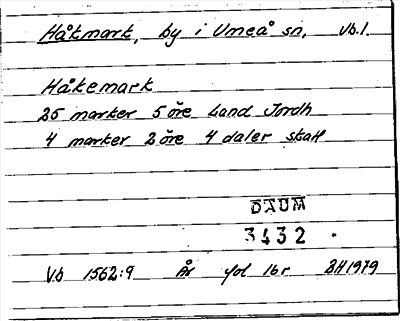 Håkmark, by i Umeå sn, Vb.1.
Håkemark
25 marker 5 öre Land Jordh
4 marker 2 öre 4 daler skatt
DAUM
3432
Vb 1562:9 År fol 16r BH1979